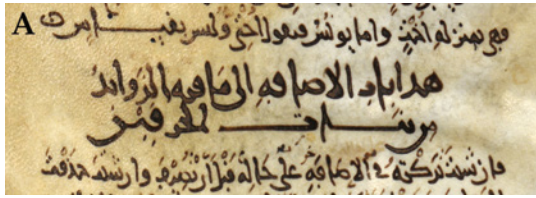 A
فهي بمنزلة اخت واما يونس فيقول اختي وليس بقياس
هذا باب الاضافة الى ما فيه الزوائد
من بنات الحرفين
فان شئت تركته في الاضافة على حاله قبل ان تضيف وان شئت حذفت